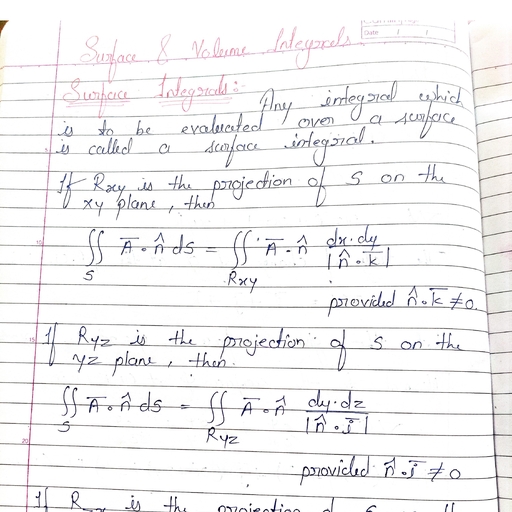 Surface & Volume Integrals.
Date / /
Surface Integrals:-
Any integral which
is to be evaluated over a surface
is called a surface integral.
If Rxy is the projection of S on the
xy plane, then
∬_S A̅ · n̂ ds = ∬_Rxy A̅ · n̂ dx·dy / |n̂ · k̅|
provided n̂ · k̅ ≠ 0.
15
If Ryz is the projection of S on the
yz plane, then.
∬_S A̅ · n̂ ds = ∬_Ryz A̅ · n̂ dy·dz / |n̂ · i̅|
20
provided n̂ · i̅ ≠ 0
If R is the projection of S